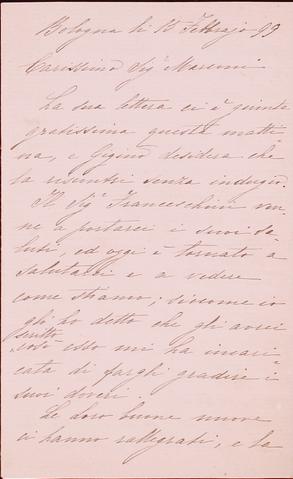 Bologna li 15 Febbrajo 99
Carissimo Sigr Marconi
La sua lettera ci è giunta
gratissima questa matti
na, e Gigino desidera che
la riscontri senza indugio.
Il Sigr Franceschini ven
ne a portarci i suoi sa
luti, ed oggi è tornato a
salutarci e a vedere
come stiamo; siccome io
gli ho detto che gli avrei
scritto
così esso mi ha incari
cata di fargli gradire i
suoi doveri.
Le loro buone nuove
ci hanno rallegrati, e la